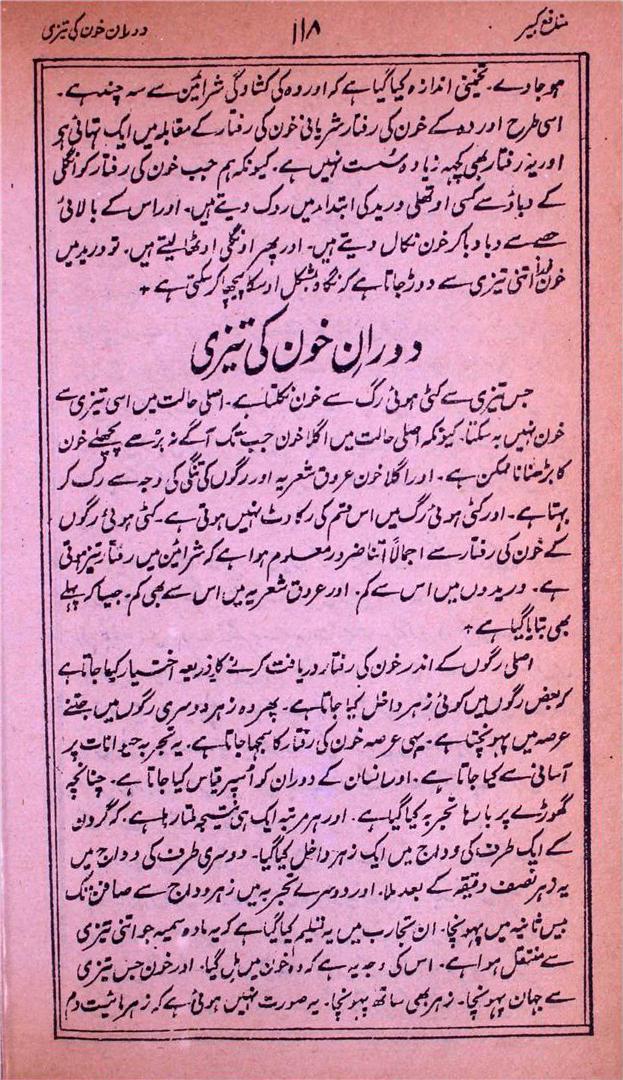 منافع کبیر
۱۱۸
دوران خون کی تیزی
ہوجاوے۔ تخمینی اندازہ کیا گیا ہے کہ اوردہ کی کشادگی شرائین سے سہ چند ہے۔
اسی طرح اوردہ کے خون کی رفتار شریانی خون کی رفتار کے مقابلہ میں ایک تہائی ہو
اور یہ رفتار بھی کچہہ زیادہ سُست نہیں ہے۔ کیونکہ ہم جب خون کی رفتار کو اُنگلی
کے دباؤ سے کسی اوتھلی ورید کی ابتدا میں روک دیتے ہیں۔ اور اس کے بالائی
حصے سے دبا دبا کر خون نکال دیتے ہیں۔ اور پھر اونگلی اوٹھا لیتے ہیں۔ تو ورید میں
خون فوراً اتنی تیزی سے دوڑ جاتا ہے کہ نگاہ بمشکل اوسکا پیچھا کر سکتی ہے +
دورانِ خون کی تیزی
جس تیزی سے کٹی ہوئی رگ سے خون نکلتا ہے۔ اصلی حالت میں اسی تیزی سے
خون نہیں بہ سکتا۔ کیونکہ اصلی حالت میں اگلا خون جب تک آگے نہ بڑھے پچھلے خون
کا بڑھنا ناممکن ہے۔ اور اگلا خون عروق شعریہ اور رگوں کی تنگی کی وجہ سے رک کر
بہتا ہے۔ اور کٹی ہوئی رگ میں اس قسم کی رکاوٹ نہیں ہوتی ہے۔ کٹی ہوئی رگوں
کے خون کی رفتار سے اجمالاً اتنا ضرور معلوم ہوا ہے کہ شرائین میں رفتار تیز ہوتی
ہے۔ وریدوں میں اس سے کم۔ اور عروق شعریہ میں اس سے بھی کم۔ جیسا کہ پہلے
بھی بتایا گیا ہے +
اصلی رگوں کے اندر خون کی رفتار دریافت کرنے کا یہ ذریعہ اختیار کیا جاتا ہے
کہ بعض رگوں میں کوئی زہر داخل کیا جاتا ہے۔ پھر وہ زہر دوسری رگوں میں جتنے
عرصہ میں پہونچتا ہے۔ یہی عرصہ خون کی رفتار کا سمجہا جاتا ہے۔ یہ تجربہ حیوانات پر
آسانی سے کیا جاتا ہے۔ اور انسان کے دوران کو اسپر قیاس کیا جاتا ہے۔ چنانچہ
گھوڑے پر بارہا تجربہ کیا گیا ہے۔ اور ہر مرتبہ ایک ہی نتیجہ ملتا رہا ہے۔ کہ گردن
کے ایک طرف کی وداج میں ایک زہر داخل کیا گیا۔ دوسری طرف کی وداج میں
یہ زہر نصف دقیقہ کے بعد ملا۔ اور دوسرے تجربہ میں زہر وداج سے صافن تک
بیس ثانیہ میں پہونچا۔ ان تجارب میں یہ تسلیم کیا گیا ہے کہ یہ مادہ سمیہ جو اتنی تیزی
سے منتقل ہوا ہے۔ اس کی وجہ یہ ہے کہ وہ خون میں مل گیا۔ اور خون جس تیزی
سے جہان پہونچا۔ زہر بھی ساتھ پہونچا۔ یہ صورت نہیں ہوئی ہے کہ زہر مائیت دم